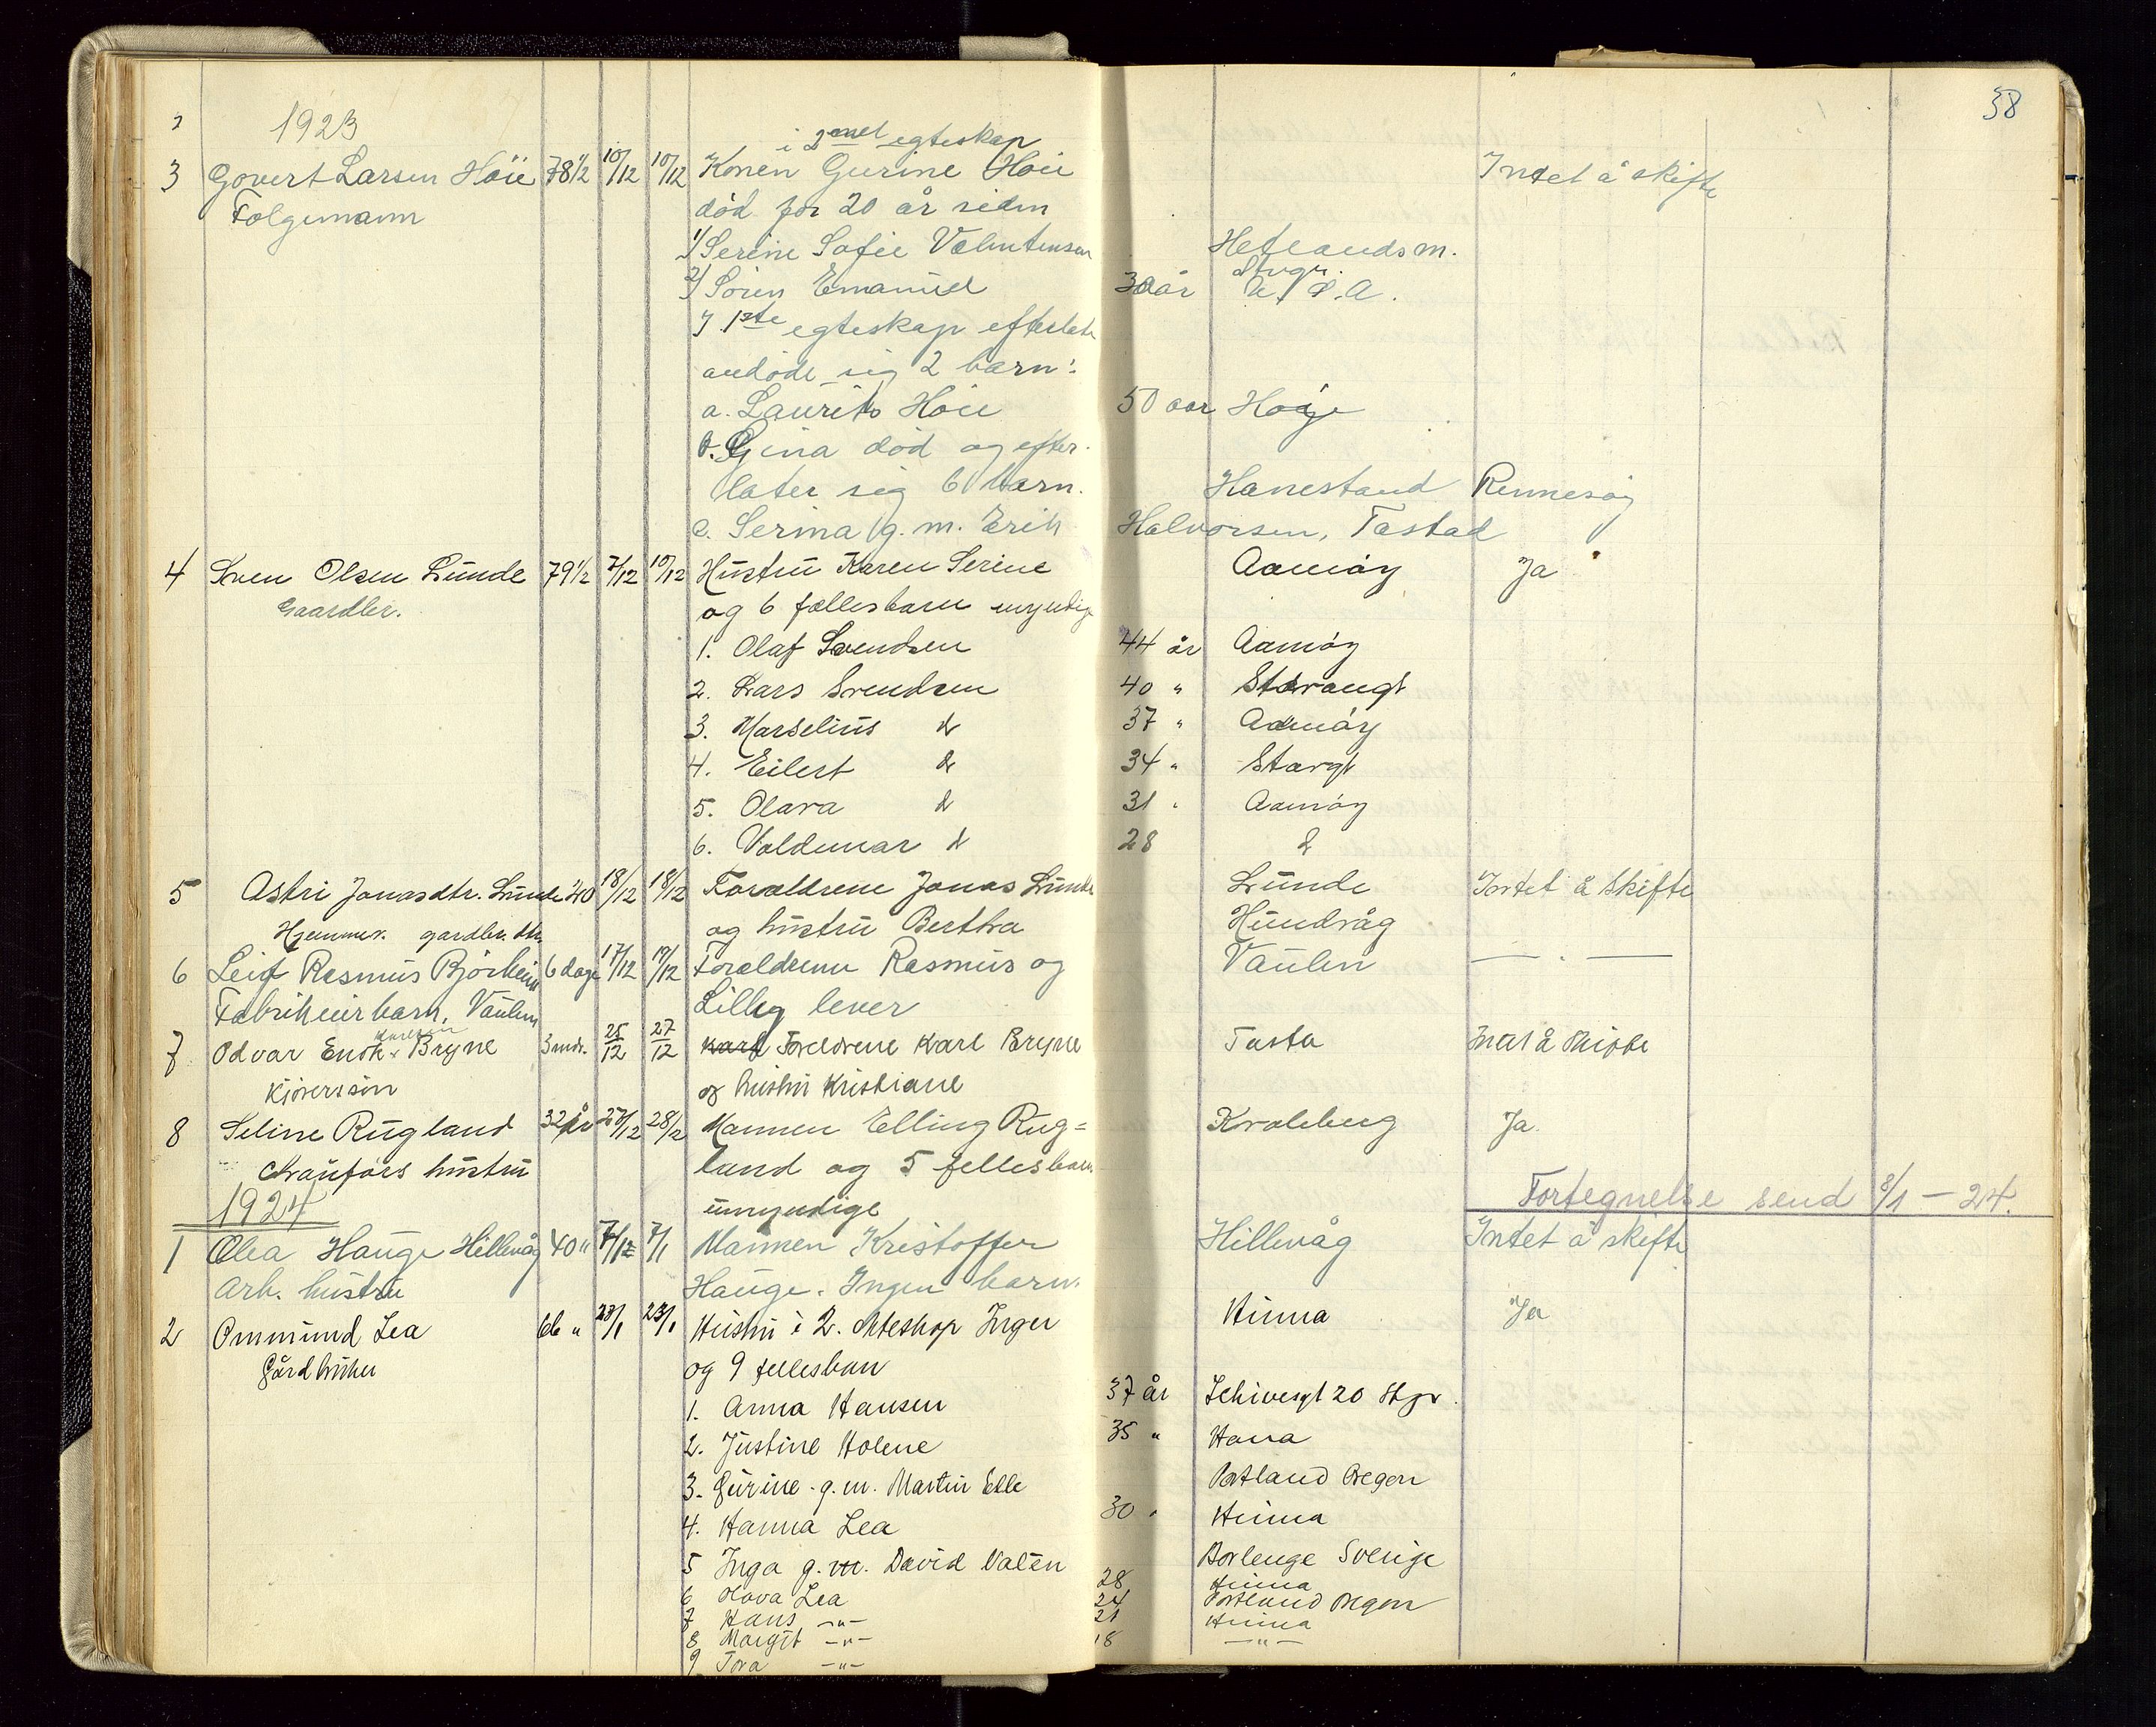 38
1923
i 2net egteskap
3 Govert Larsen Höie 78 1/2 10/12 10/12 Konen Gurine Höie Intet å skifte
Folgemann död for 20 år siden
1/ Serine Sofie Valentinsen Hetlandsm. Stvgr.
2/ Sören Emanuel 30 år U.S.A.
I 1ste egteskap efterlot
avdöde sig 2 barn:
a. Laurits Höie 50 aar Höije
b. Gina död og efter-
later sig 6 barn. Hanestand Rennesöy
c. Serina g. m. Erik Halvorsen, Tastad
4 Sven Olsen Lunde 79 1/2 7/12 10/12 Hustru Karen Serine Aamöy Ja
Gaardbr. og 6 fællesbarn myndige
1. Olaf Svendsen 44 år Aamöy
2. Lars Svendsen 40 " Stavangr
3. Marselius d 37 " Aamöy
4. Eilert d 34 " Stavgr
5. Olava d 31 " Aamöy
6. Valdemar d 28 d
5 Astri Jonasdtr. Lunde 40 18/12 18/12 Forældrene Jonas Lunde Lunde Intet å skifte
Hjemmev. gardbr. dtr. og hustru Bertha Hundvåg
6 Leif Rasmus Björheim 6 dage 17/12 19/12 Forældrene Rasmus og Vaulen — " —
Fabrikeier barn, Vaulen Lilly lever
7 Odvar Enok Karlsen Bryne 3 mdr. 25/12 27/12 Karl Foreldrene Karl Bryne Tasta Intet å skifte
Kjörerssön og hustru Kristiane
8 Seline Rugland 32 år 27/12 28/12 Mannen Elling Rug= Kvaleberg Ja
Chaufförs hustru land og 5 fellesbarn
umyndige
Fortegnelse send 8/1 – 24.
1924
1 Olea Hauge Hillevåg 40 " 7/12 7/1 Mannen Kristoffer Hillevåg Intet å skifte
Arb. hustru Hauge. Ingen barn.
2 Ommund Lea 66 " 23/1 23/1 Hustru i 2. ekteskap Inger Hinna Ja
Gårdbruker og 9 fellesbarn
1. Anna Hansen 37 år Schivesgt 20 Stgr.
2. Justine Holene 35 " Hana
3. Gurine g. m. Martin Elle Portland Oregon
4. Hanna Lea 30 " Hinna
5 Inga g. m. David Valén Borlenge Sverige
6 Olava Lea 28 Hinna
7 Hans –"– 24 Portland Oregon
8 Margit –"– 21 Hinna
9 Tora –"– 18 –"–